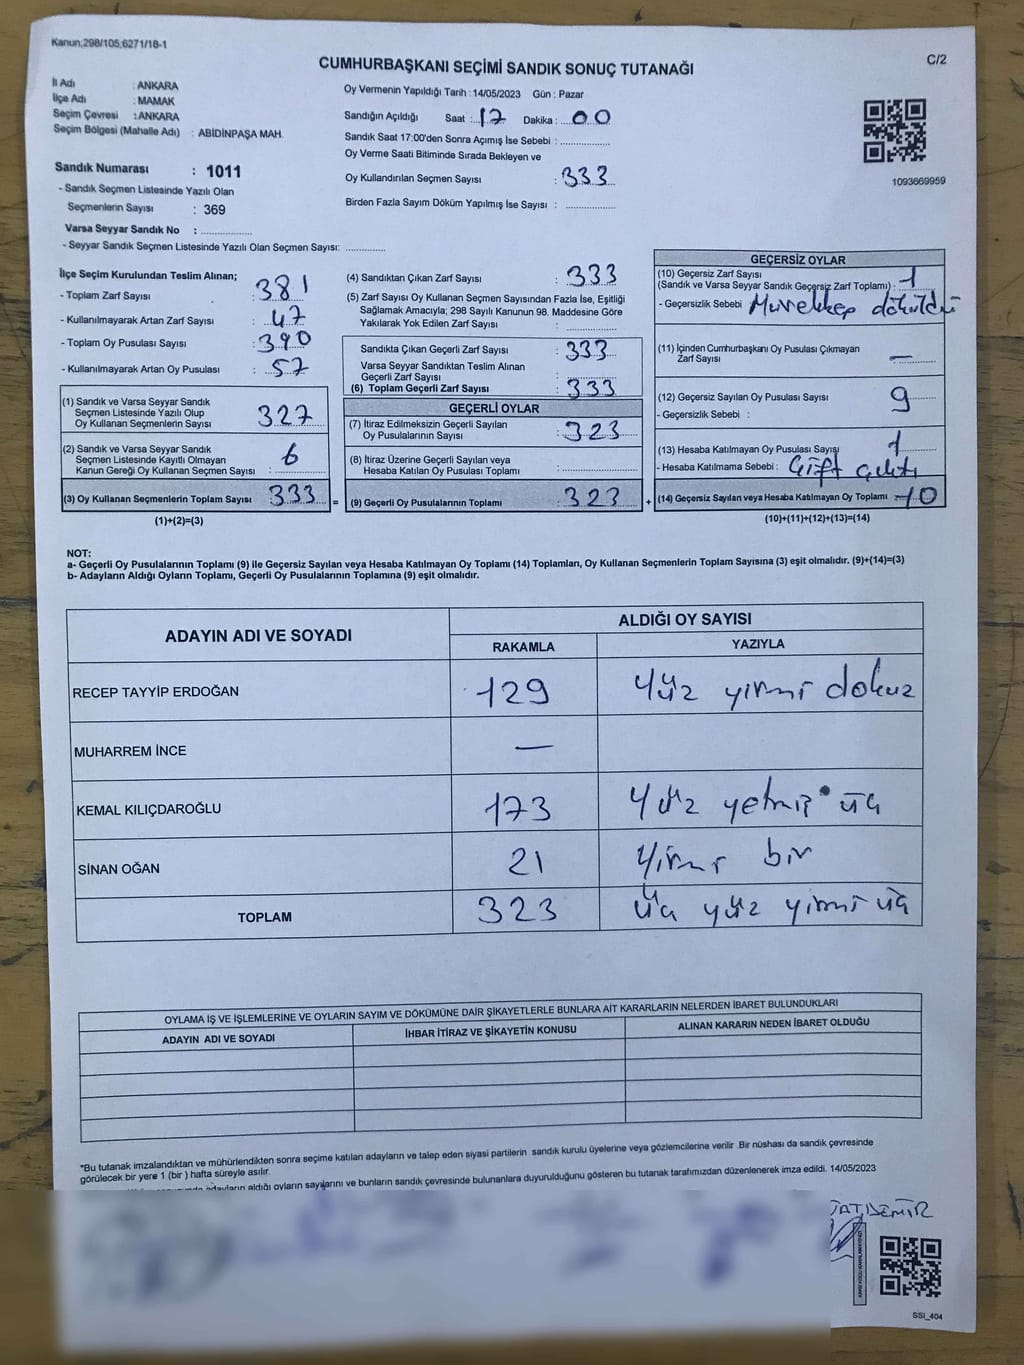 Kanun,298/105,6271/18-1
C/2
CUMHURBAŞKANI SEÇİMİ SANDIK SONUÇ TUTANAĞI
İl Adı : ANKARA
İlçe Adı : MAMAK
Seçim Çevresi : ANKARA
Seçim Bölgesi (Mahalle Adı) : ABİDİNPAŞA MAH.
Sandık Numarası : 1011
- Sandık Seçmen Listesinde Yazılı Olan
Seçmenlerin Sayısı : 369
Varsa Seyyar Sandık No : ..............
- Seyyar Sandık Seçmen Listesinde Yazılı Olan Seçmen Sayısı: ............
Oy Vermenin Yapıldığı Tarih : 14/05/2023 Gün : Pazar
Sandığın Açıldığı Saat : 17 Dakika : 00
Sandık Saat 17:00'den Sonra Açımış İse Sebebi : ..............
Oy Verme Saati Bitiminde Sırada Bekleyen ve
Oy Kullandırılan Seçmen Sayısı : 333
Birden Fazla Sayım Döküm Yapılmış İse Sayısı : ..............
1093669959
İlçe Seçim Kurulundan Teslim Alınan;
- Toplam Zarf Sayısı : 381
- Kullanılmayarak Artan Zarf Sayısı : 47
- Toplam Oy Pusulası Sayısı : 390
- Kullanılmayarak Artan Oy Pusulası : 57
(1) Sandık ve Varsa Seyyar Sandık
Seçmen Listesinde Yazılı Olup
Oy Kullanan Seçmenlerin Sayısı : 327
(2) Sandık ve Varsa Seyyar Sandık
Seçmen Listesinde Kayıtlı Olmayan
Kanun Gereği Oy Kullanan Seçmen Sayısı : 6
(3) Oy Kullanan Seçmenlerin Toplam Sayısı 333 =
(1)+(2)=(3)
(4) Sandıktan Çıkan Zarf Sayısı : 333
(5) Zarf Sayısı Oy Kullanan Seçmen Sayısından Fazla İse, Eşitliği
Sağlamak Amacıyla; 298 Sayılı Kanunun 98. Maddesine Göre
Yakılarak Yok Edilen Zarf Sayısı : ..............
Sandıkta Çıkan Geçerli Zarf Sayısı : 333
Varsa Seyyar Sandıktan Teslim Alınan
Geçerli Zarf Sayısı : ..............
(6) Toplam Geçerli Zarf Sayısı : 333
GEÇERLİ OYLAR
(7) İtiraz Edilmeksizin Geçerli Sayılan
Oy Pusulalarının Sayısı : 323
(8) İtiraz Üzerine Geçerli Sayılan veya
Hesaba Katılan Oy Pusulası Toplamı : ..............
(9) Geçerli Oy Pusulalarının Toplamı : 323 +
GEÇERSİZ OYLAR
(10) Geçersiz Zarf Sayısı
(Sandık ve Varsa Seyyar Sandık Geçersiz Zarf Toplamı) : 1
- Geçersizlik Sebebi Mürekkep döküldü
(11) İçinden Cumhurbaşkanı Oy Pusulası Çıkmayan
Zarf Sayısı : —
(12) Geçersiz Sayılan Oy Pusulası Sayısı : 9
- Geçersizlik Sebebi :
(13) Hesaba Katılmayan Oy Pusulası Sayısı : 1
- Hesaba Katılmama Sebebi : Çift çıktı
(14) Geçersiz Sayılan veya Hesaba Katılmayan Oy Toplamı : 10
(10)+(11)+(12)+(13)=(14)
NOT:
a- Geçerli Oy Pusulalarının Toplamı (9) ile Geçersiz Sayılan veya Hesaba Katılmayan Oy Toplamı (14) Toplamları, Oy Kullanan Seçmenlerin Toplam Sayısına (3) eşit olmalıdır. (9)+(14)=(3)
b- Adayların Aldığı Oyların Toplamı, Geçerli Oy Pusulalarının Toplamına (9) eşit olmalıdır.
ADAYIN ADI VE SOYADI
ALDIĞI OY SAYISI
RAKAMLA YAZIYLA
RECEP TAYYİP ERDOĞAN 129 Yüz yirmi dokuz
MUHARREM İNCE —
KEMAL KILIÇDAROĞLU 173 Yüz yetmiş üç
SİNAN OĞAN 21 Yirmi bir
TOPLAM 323 Üç yüz yirmi üç
OYLAMA İŞ VE İŞLEMLERİNE VE OYLARIN SAYIM VE DÖKÜMÜNE DAİR ŞİKAYETLERLE BUNLARA AİT KARARLARIN NELERDEN İBARET BULUNDUKLARI
ADAYIN ADI VE SOYADI İHBAR İTİRAZ VE ŞİKAYETİN KONUSU ALINAN KARARIN NEDEN İBARET OLDUĞU
*Bu tutanak imzalandıktan ve mühürlendikten sonra seçime katılan adayların ve talep eden siyasi partilerin sandık kurulu üyelerine veya gözlemcilerine verilir .Bir nüshası da sandık çevresinde
görülecek bir yere 1 (bir ) hafta süreyle asılır.
adayların aldığı oyların sayılarını ve bunların sandık çevresinde bulunanlara duyurulduğunu gösteren bu tutanak tarafımızdan düzenlenerek imza edildi. 14/05/2023
DEMİR
SSI_404